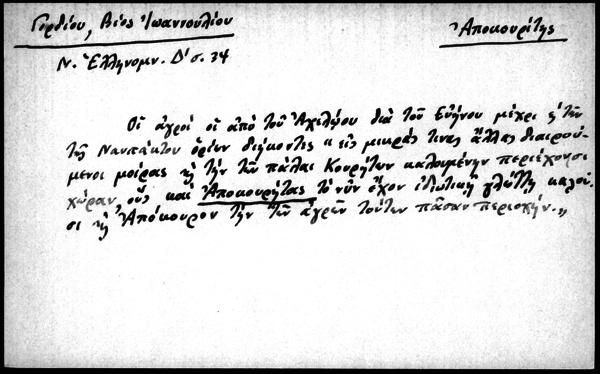 Γορδίου, Βίος Ἰωαννουλίου
Ἀποκουρίτης
Ν. Ἑλληνομν. Δ' σ. 34
Οἱ ἀγροὶ οἱ ἀπὸ τοῦ Ἀχελῴου διὰ τοῦ Εὐήνου μέχρι τῶν
τῆς Ναυπάκτου ὁρίων διήκοντες « εἰς μικράς τινας ἄλλας διαιρού-
μενοι μοίρας καὶ τὴν τῶν πάλαι Κουρήτων καλουμένην περιέχουσι
χώραν, οὓς καὶ Ἀποκουρήτας τὸ νῦν ἔχον ἰδιωτικῇ γλώττῃ καλοῦ-
σι καὶ Ἀπόκουρον τὴν τῶν ἀγρῶν τούτων πᾶσαν περιοχήν. »